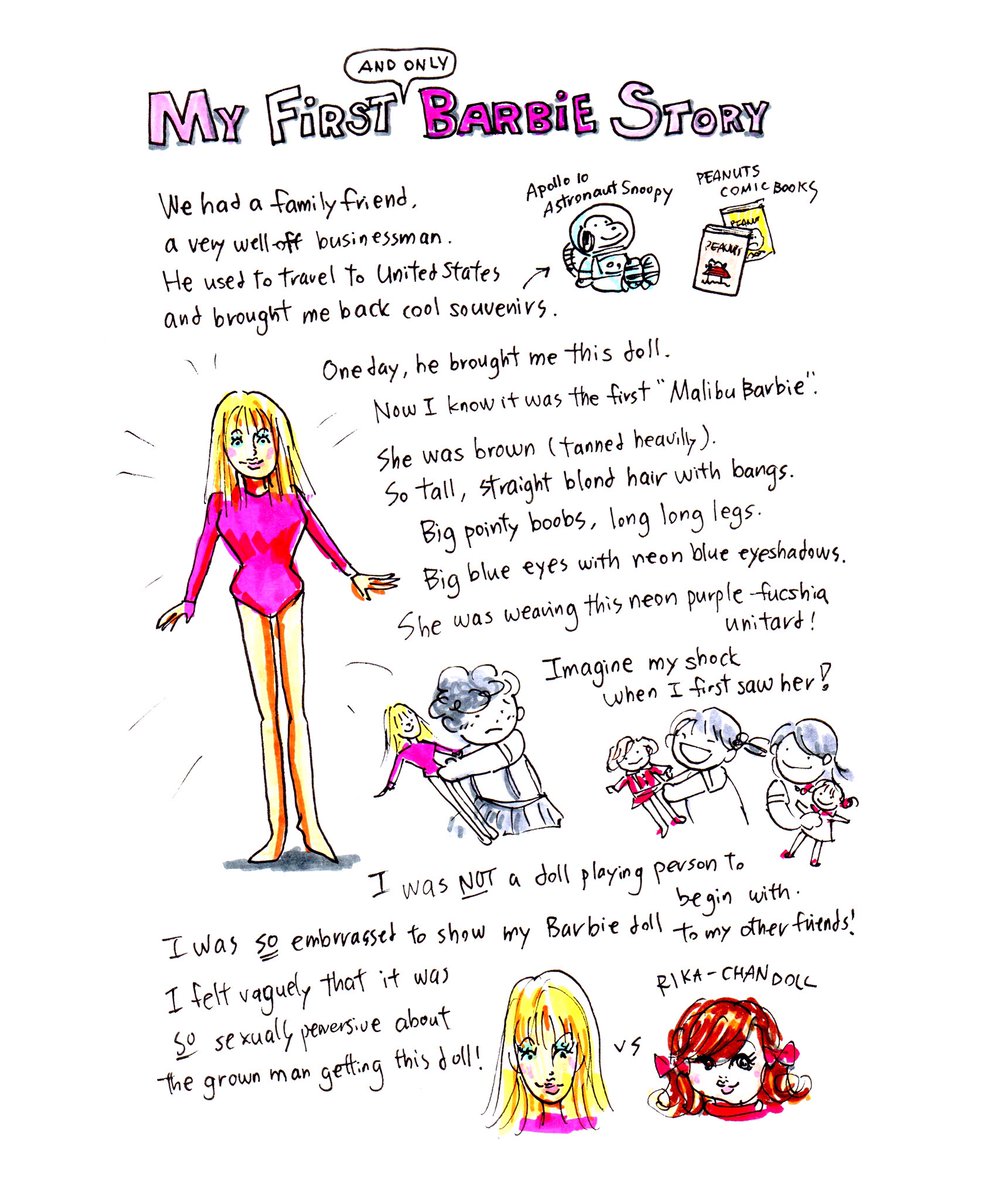 AND ONLY
MY FIRST BARBIE STORY
We had a family friend,
a very well-off businessman.
He used to travel to United States
and brought me back cool souvenirs.
Apollo 10
Astronaut Snoopy
PEANUTS
COMIC BOOKS
PEANUTS
One day, he brought me this doll.
Now I know it was the first "Malibu Barbie".
She was brown (tanned heavilly).
So tall, straight blond hair with bangs.
Big pointy boobs, long long legs.
Big blue eyes with neon blue eyeshadows.
She was wearing this neon purple-fucshia
unitard!
Imagine my shock
when I first saw her!
I was NOT a doll playing person to
begin with.
I was so embrrassed to show my Barbie doll to my other friends!
I felt vaguely that it was
so sexually perversive about
the grown man getting this doll!
RIKA-CHAN DOLL
VS